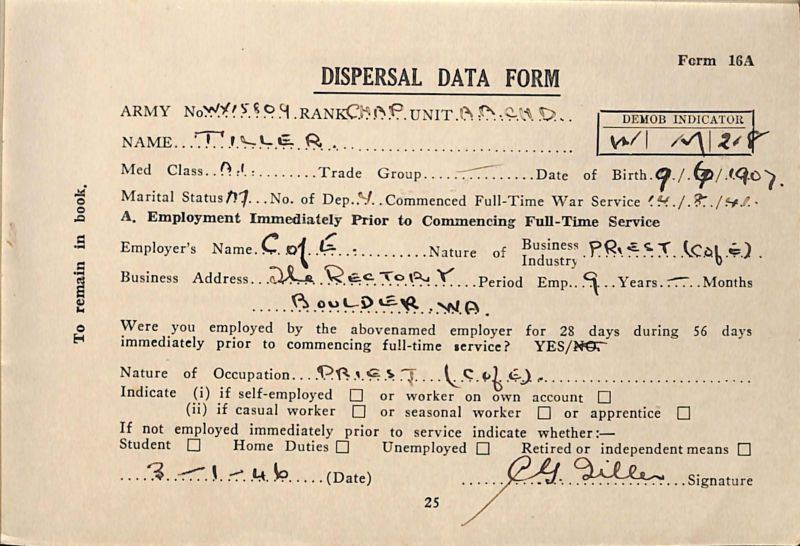 Form 16A
DISPERSAL DATA FORM
ARMY No WX15809 RANK CHAP. UNIT A.A.CH.D.
DEMOB INDICATOR
NAME TILLER.
M 2.8
Med Class A1 Trade Group — Date of Birth 9/6/1907.
Marital Status M No. of Dep. 4 Commenced Full-Time War Service 14/8/41
A. Employment Immediately Prior to Commencing Full-Time Service
Employer's Name C of E. Nature of Business Industry PRIEST (C of E).
Business Address The RECTORY Period Emp. 9 Years — Months
BOULDER. WA.
Were you employed by the abovenamed employer for 28 days during 56 days
immediately prior to commencing full-time service? YES/NO.
Nature of Occupation PRIEST (C of E).
Indicate (i) if self-employed □ or worker on own account □
(ii) if casual worker □ or seasonal worker □ or apprentice □
If not employed immediately prior to service indicate whether:—
Student □ Home Duties □ Unemployed □ Retired or independent means □
3-1-46 (Date) CG. Tiller Signature
25
To remain in book.